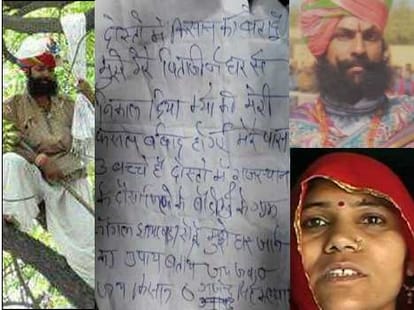 दोस्तो मे किसान का बेटा हुँ
मुझे मेरे पिताजी ने घर से
निकाल दिया क्यो की मेरी
फसल बर्बाद हो गई मेरे पास
3 बच्चे है दोस्तो मे राजस्थान
के दौसा जिले के
मुझे घर जाने
का उपाय बताओ जय जवान
जय किसान